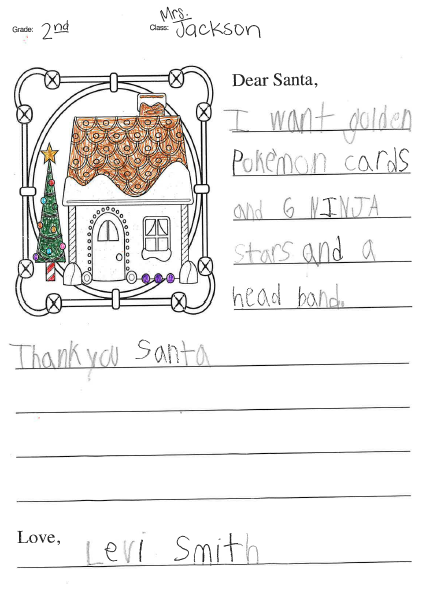 Grade: 2nd
Class: Mrs. Jackson
Dear Santa,
I want golden
Pokemon cards
and 6 NINJA
stars and a
head band.
Thank you Santa
Love, Levi Smith